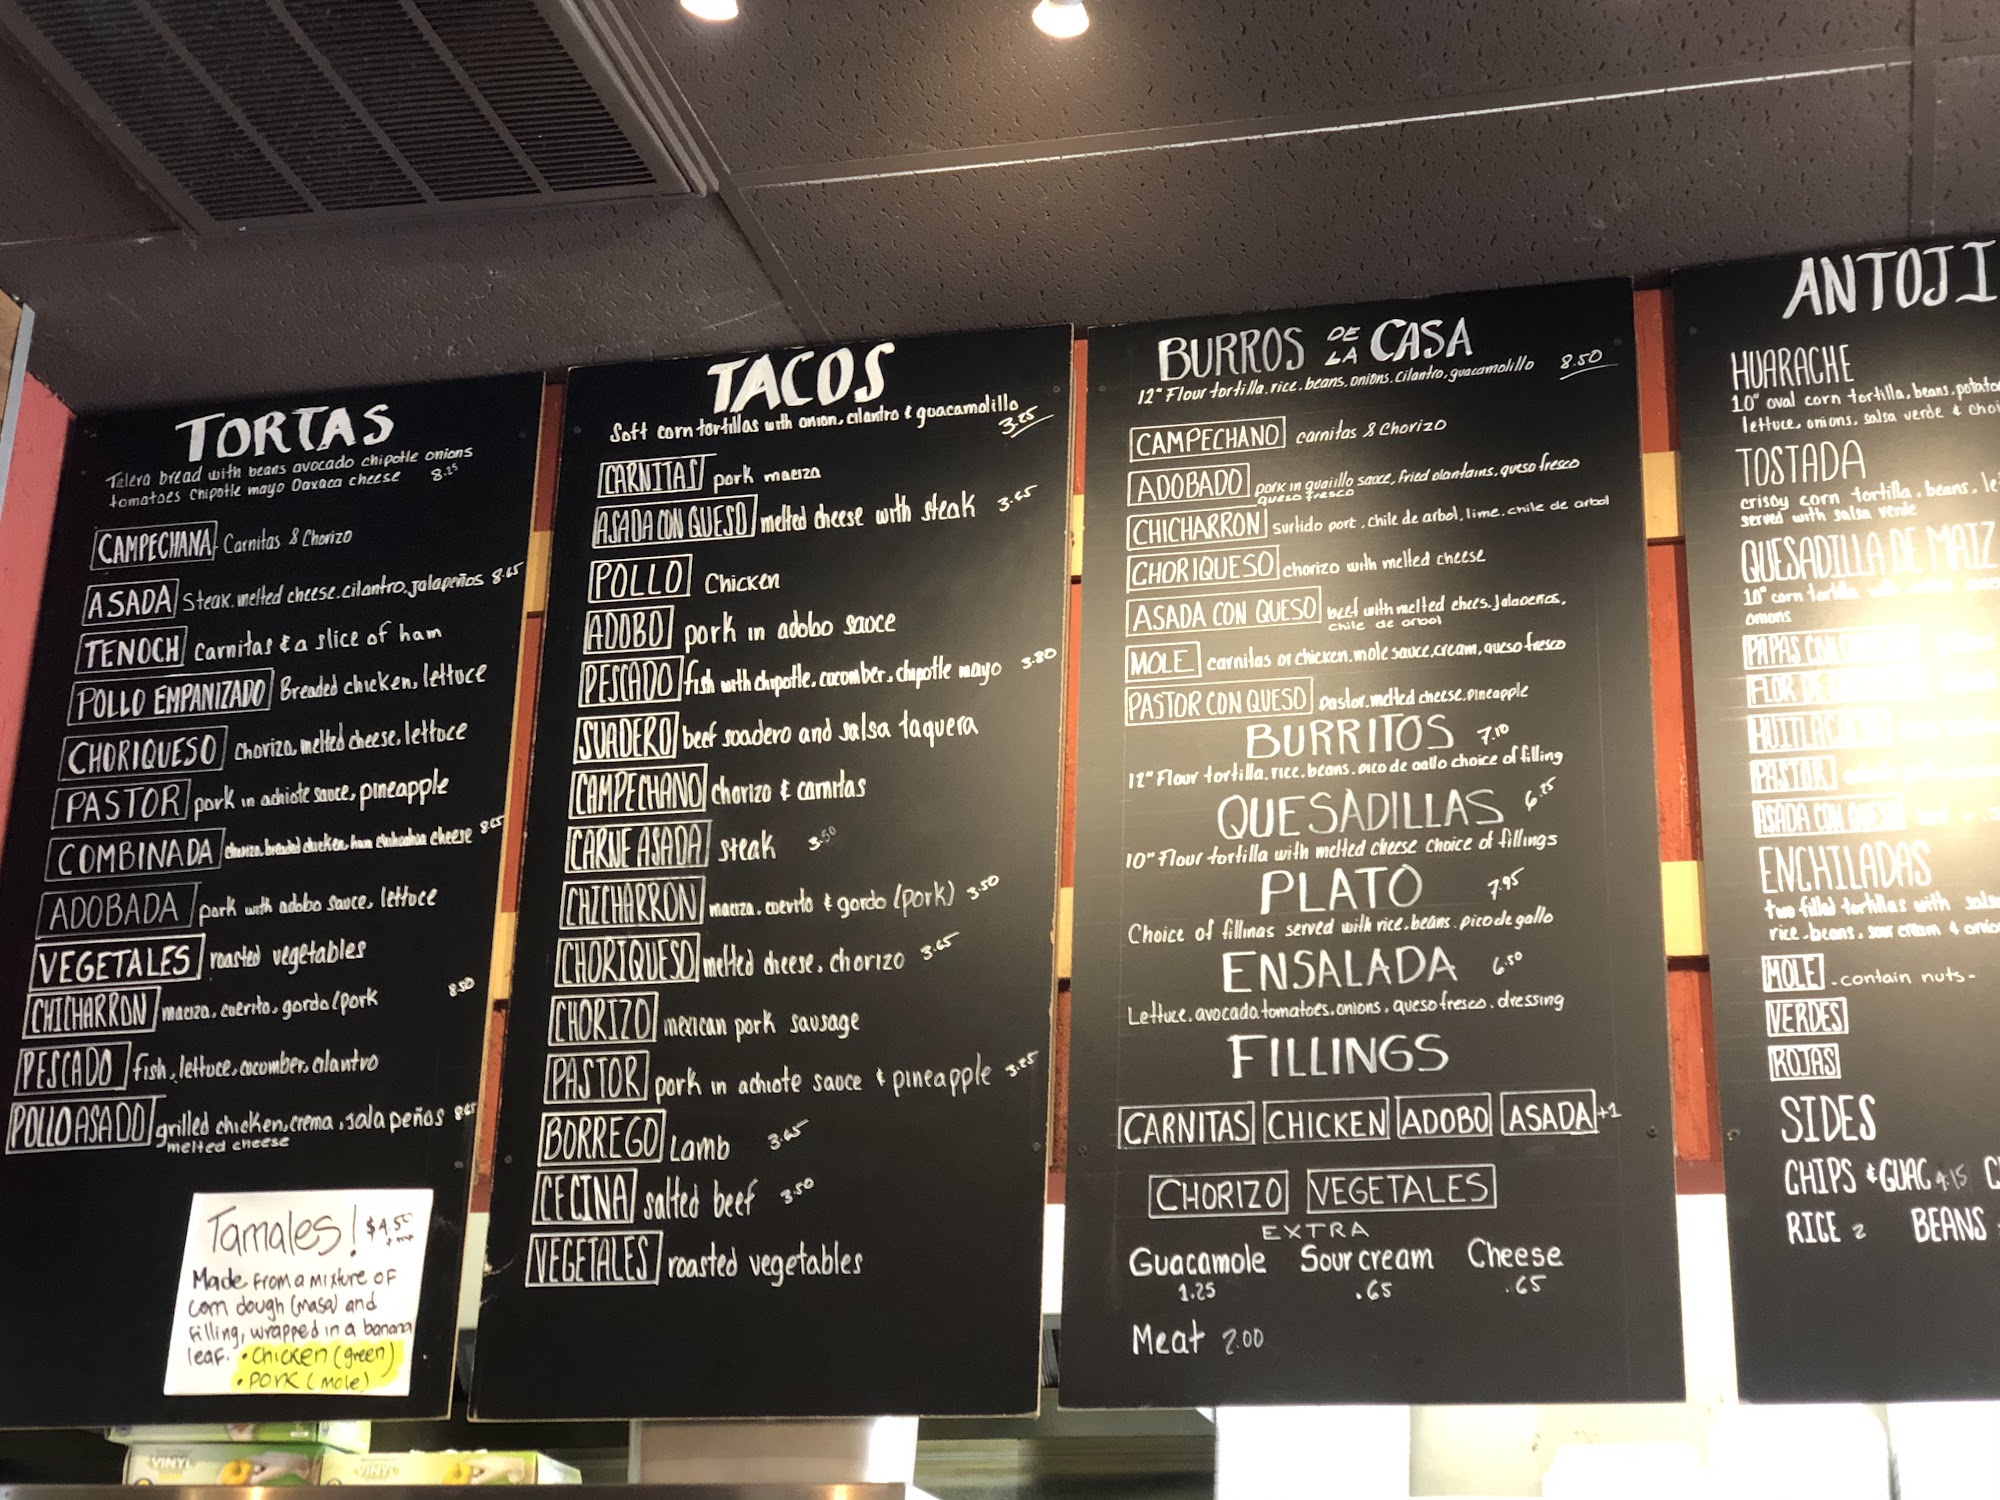 TORTAS
Telera bread with beans avocado chipotle onions
tomatoes chipotle mayo Oaxaca cheese 8.25
CAMPECHANA Carnitas & Chorizo
ASADA Steak. melted cheese. cilantro. jalapeños 8.65
TENOCH Carnitas & a slice of ham
POLLO EMPANIZADO Breaded chicken, lettuce
CHORIQUESO Chorizo, melted cheese, lettuce
PASTOR pork in achiote sauce, pineapple
COMBINADA chorizo. breaded chicken. ham chihuahua cheese 8.65
ADOBADA pork with adobo sauce, lettuce
VEGETALES roasted vegetables
CHICHARRON maciza, cuerito, gordo (pork 8.50
PESCADO fish, lettuce, cucumber, cilantro
POLLO ASADO grilled chicken, crema, jalapeños 8.65
melted cheese
Tamales! $4.50
Made from a mixture of
corn dough (masa) and
filling, wrapped in a banana
leaf. • Chicken (green)
• Pork (mole)
TACOS
Soft corn tortillas with onion, cilantro & guacamolillo
3.25
CARNITAS pork maciza
ASADA CON QUESO melted cheese with steak 3.65
POLLO Chicken
ADOBO pork in adobo sauce
PESCADO fish with chipotle. cucumber, chipotle mayo 3.80
SUADERO beef soadero and salsa taquera
CAMPECHANO chorizo & carnitas
CARNE ASADA steak 3.50
CHICHARRON maciza, cuerito & gordo (pork) 3.50
CHORIQUESO melted cheese, chorizo 3.65
CHORIZO mexican pork sausage
PASTOR pork in achiote sauce & pineapple 3.25
BORREGO Lamb 3.65
CECINA salted beef 3.50
VEGETALES roasted vegetables
BURROS DE LA CASA
12" Flour tortilla. rice. beans. onions. cilantro, guacamolillo 8.50
CAMPECHANO carnitas & Chorizo
ADOBADO pork in guajillo sauce, fried plantains, queso fresco
queso fresco
CHICHARRON surtido port, chile de arbol, lime. chile de arbol
CHORIQUESO chorizo with melted cheese
ASADA CON QUESO beef with melted chees. Jalapeños,
chile de arbol
MOLE carnitas or chicken, mole sauce, cream, queso fresco
PASTOR CON QUESO pastor. melted cheese. pineapple
BURRITOS 7.10
12" Flour tortilla. rice. beans. pico de gallo choice of filling
QUESADILLAS 6.25
10" Flour tortilla with melted cheese choice of fillings
PLATO 7.95
Choice of fillings served with rice. beans. pico de gallo
ENSALADA 6.50
Lettuce. avocado. tomatoes. onions, queso fresco. dressing
FILLINGS
CARNITAS CHICKEN ADOBO ASADA +1
CHORIZO VEGETALES
EXTRA
Guacamole Sour cream Cheese
1.25 .65 .65
Meat 2.00
ANTOJI
HUARACHE
10" oval corn tortilla, beans, potato
lettuce, onions, salsa verde & choi
TOSTADA
crispy corn tortilla, beans, le
served with salsa verde
QUESADILLA DE MAIZ
10" corn tortilla with
onions
PAPAS CON
FLOR DE
HUITLACOCHE
PASTOR
ASADA CON QUESO
ENCHILADAS
two filled tortillas with salsa
rice. beans, sour cream & onion
MOLE - contain nuts -
VERDES
ROJAS
SIDES
CHIPS & GUAC 4.15 C
RICE 2 BEANS
VINYL
VINYL